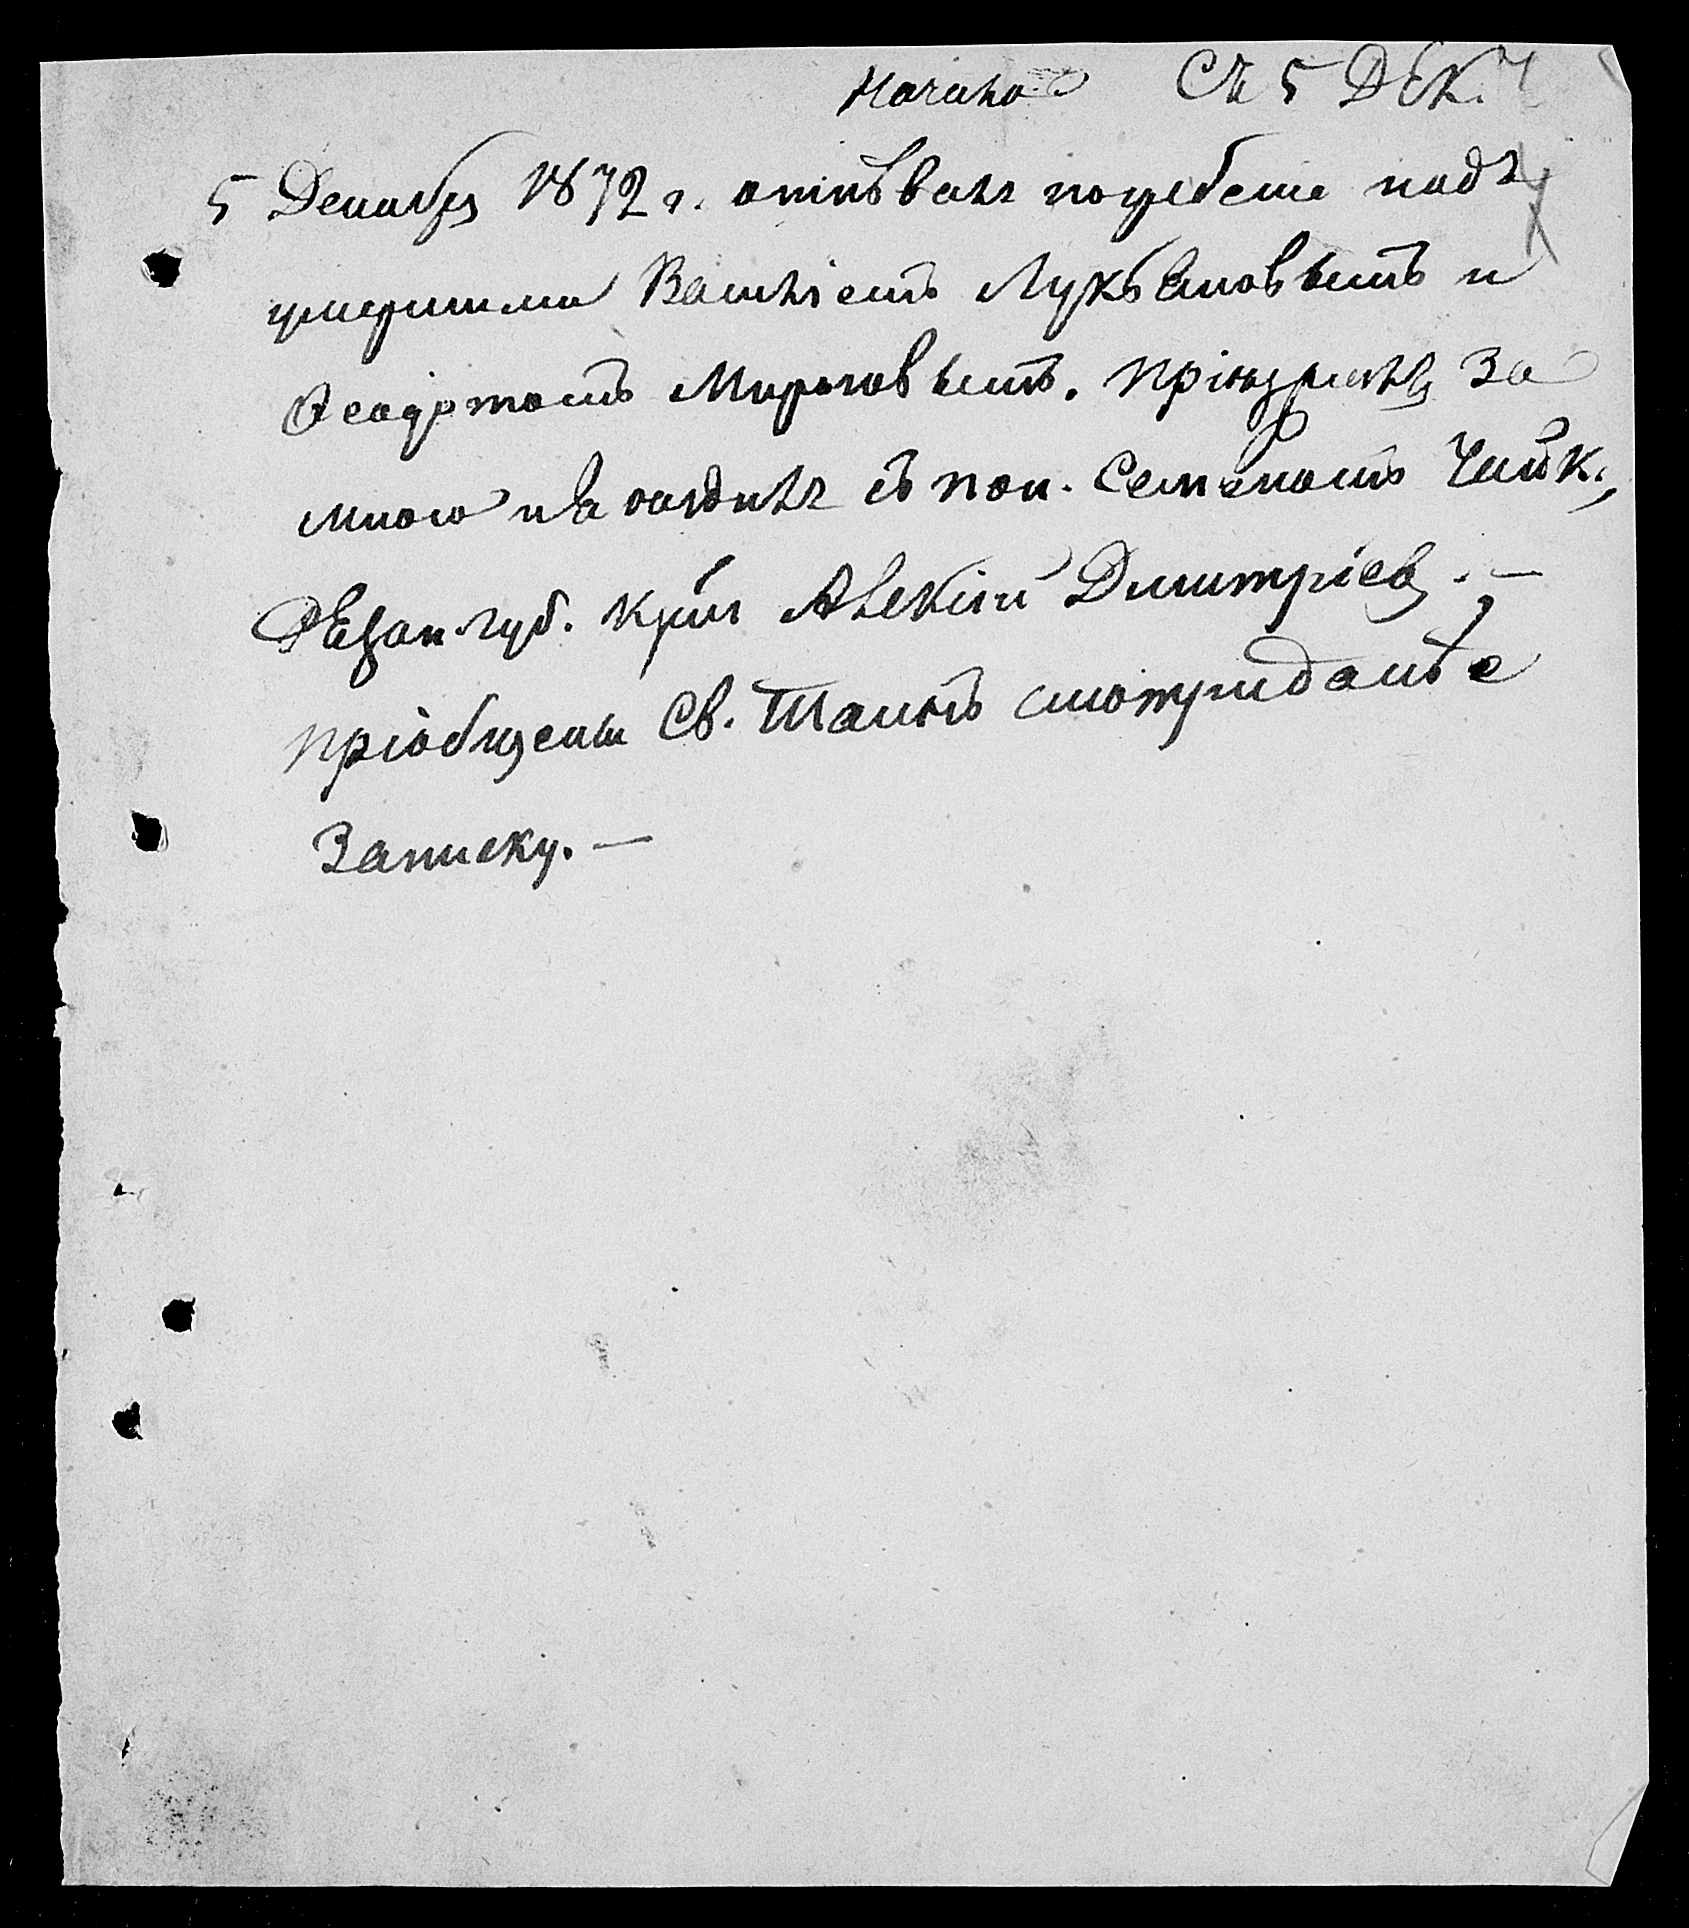 Начало Съ 5 Дек.
5 Декабря 1872 г. отпѣванъ погребеніе надъ
умершими Василіемъ Лукьяновымъ и
Ѳеодотомъ Мироновымъ. За
мною съ пон. Семеномъ Чайк.,
губ. Кр. Алексій Димитріев. —
пріобщены Св. Таинъ смотри
Записку. —